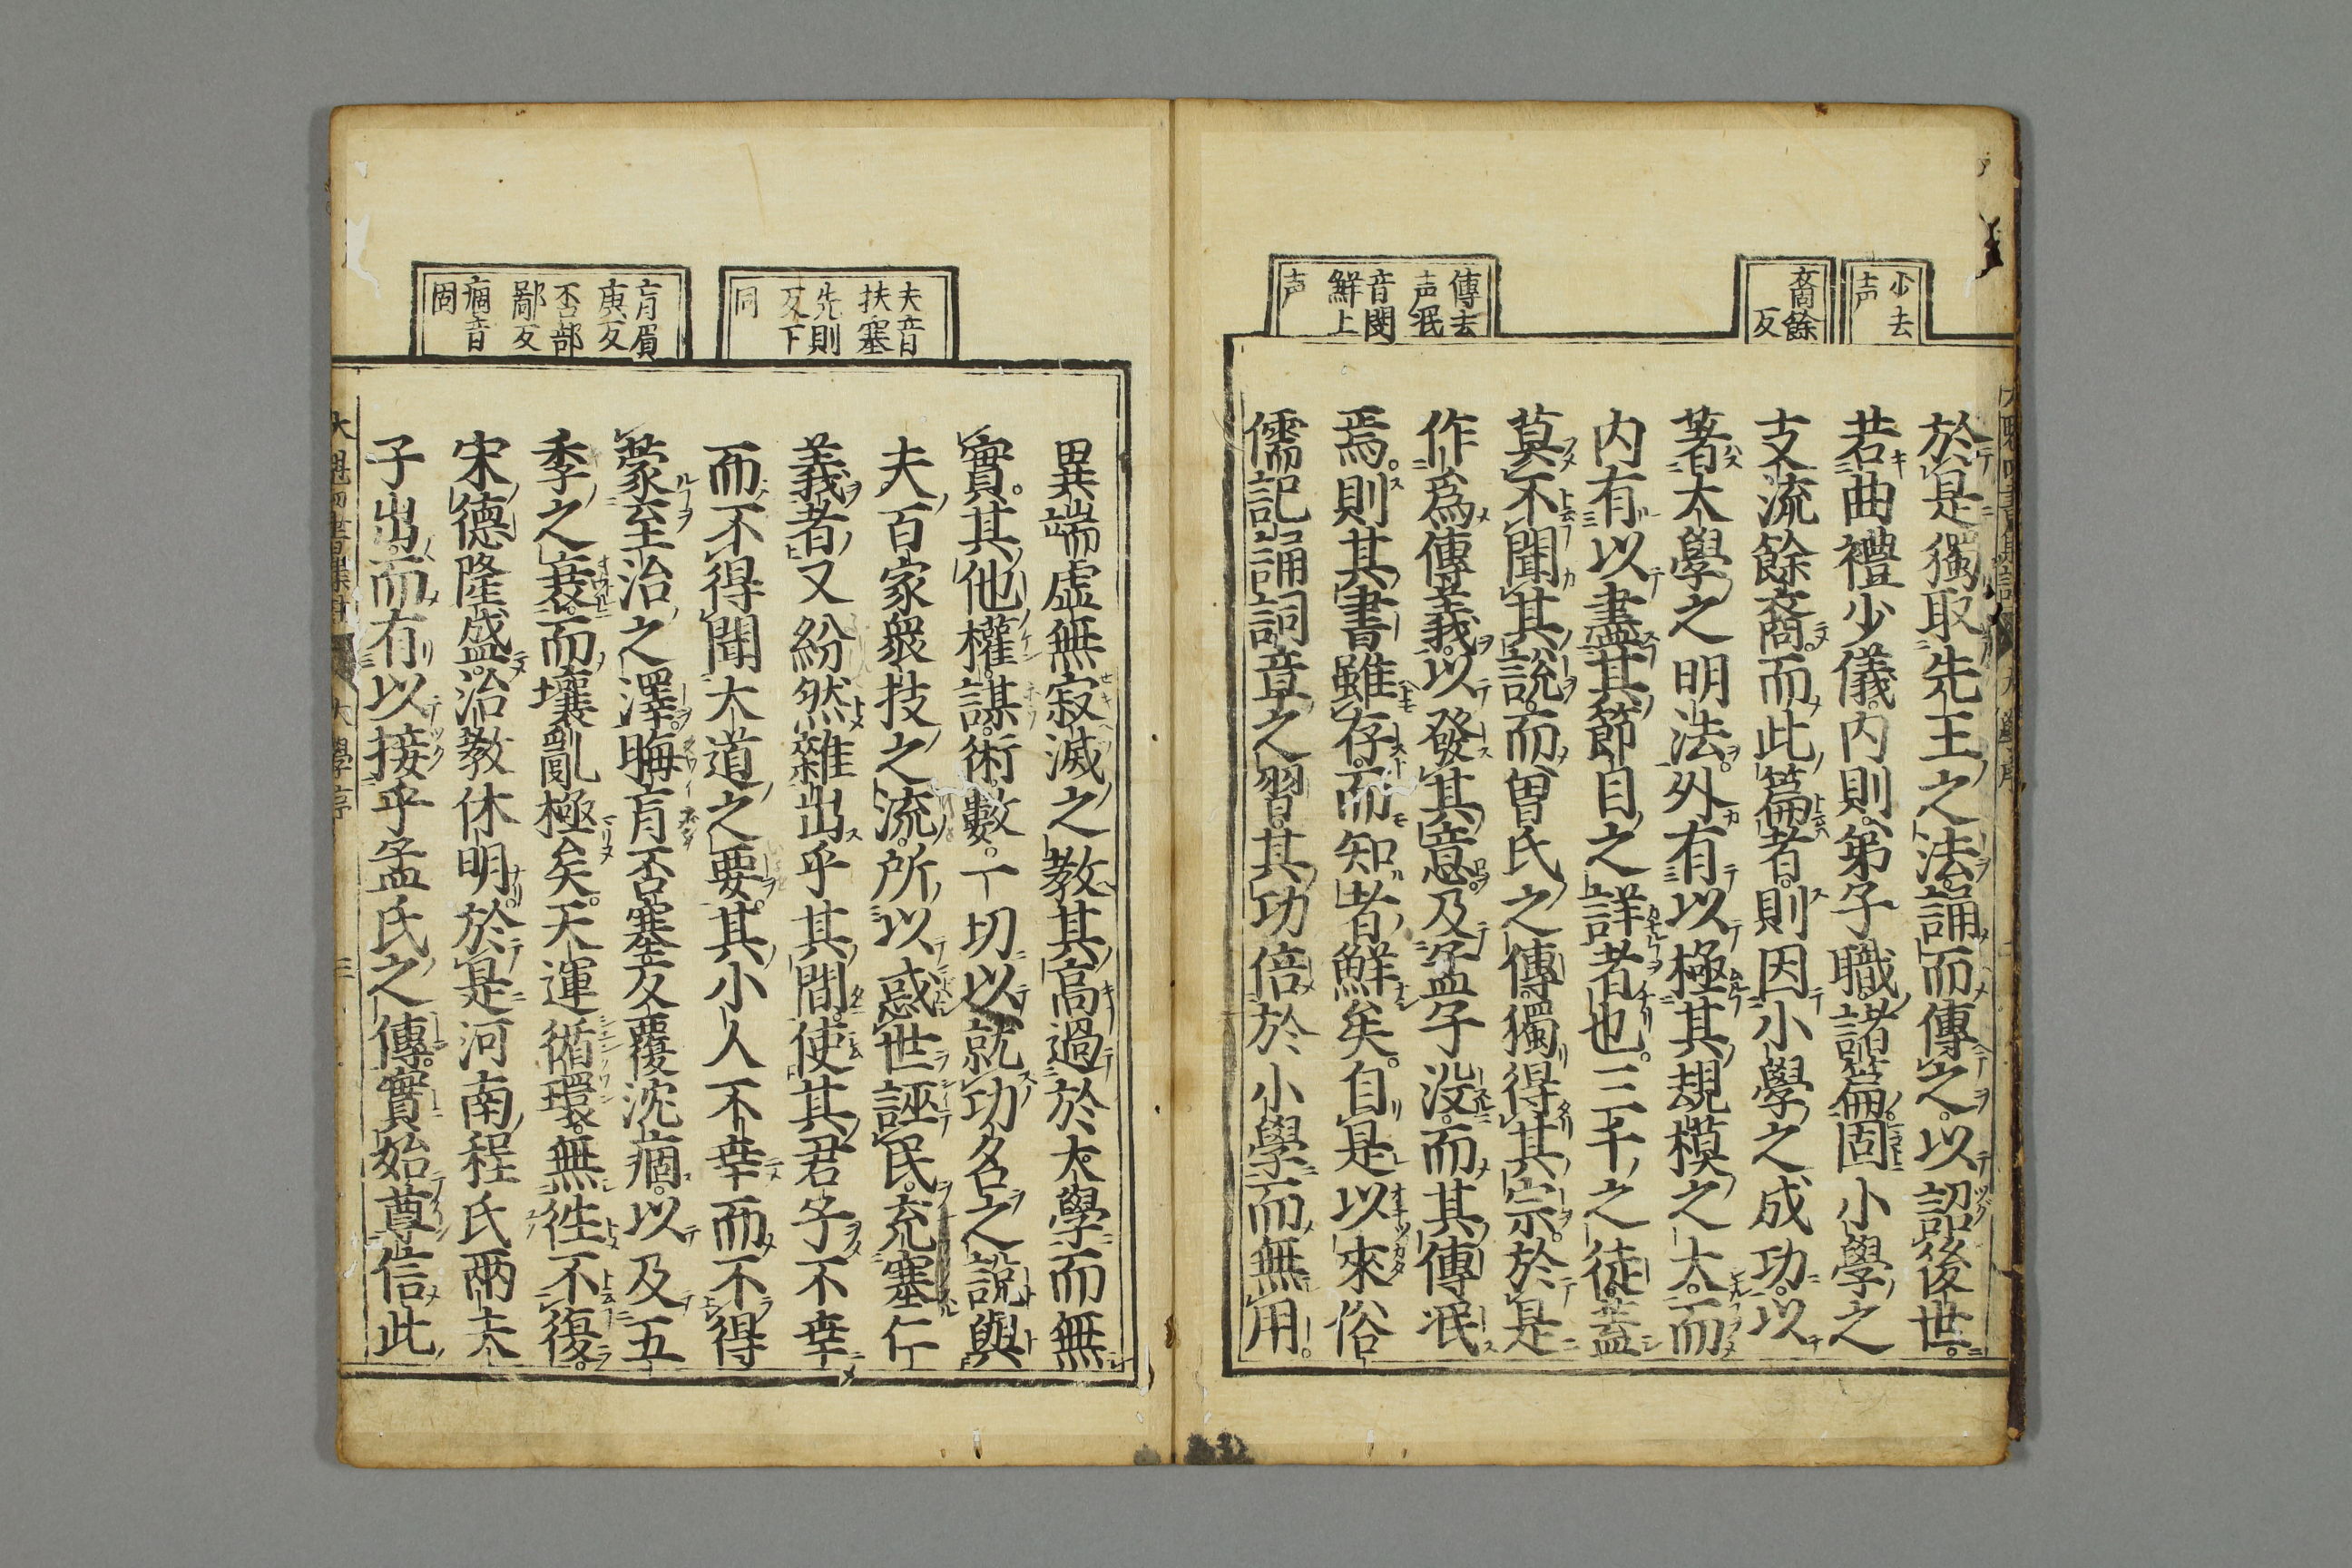 少去
声
裔餘
反
傳去
声泯
音閔
鮮上
声
於是獨取先王之法。誦而傳之。以詔後世。
若曲禮少儀。内則。弟子職。諸篇。固小學之
支流餘裔。而此篇者。則因小學之成功。以
著大學之明法。外有以極其規模之大。而
内有以盡其節目之詳者也。三千之徒。蓋
莫不聞其說。而曽氏之傳。獨得其宗。於是
作爲傳義。以發其意。及孟子没。而其傳泯
焉。則其書雖存。而知者鮮矣。自是以來俗
儒記誦詞章之習。其功倍於小學而無用。
夫音
扶塞
先則
反下
同
盲眉
庚反
否部
鄙反
痼音
固
異端虚無寂滅之教。其高過於大學而無
實。其他權謀。術數。一切以就功名之說。與
夫百家衆技之流。所以惑世誣民。充塞仁
義者。又紛然雜出乎其間。使其君子不幸
而不得聞大道之要。其小人不幸而不得
蒙至治之澤。晦盲否塞反覆沈痼。以及五
季之衰。而壞亂極矣。天運循環。無徃不復。
宋德隆盛。治教休明。於是河南程氏兩夫
子出。而有以接乎孟氏之傳。實始尊信此
大魁四書集註 大學序 三